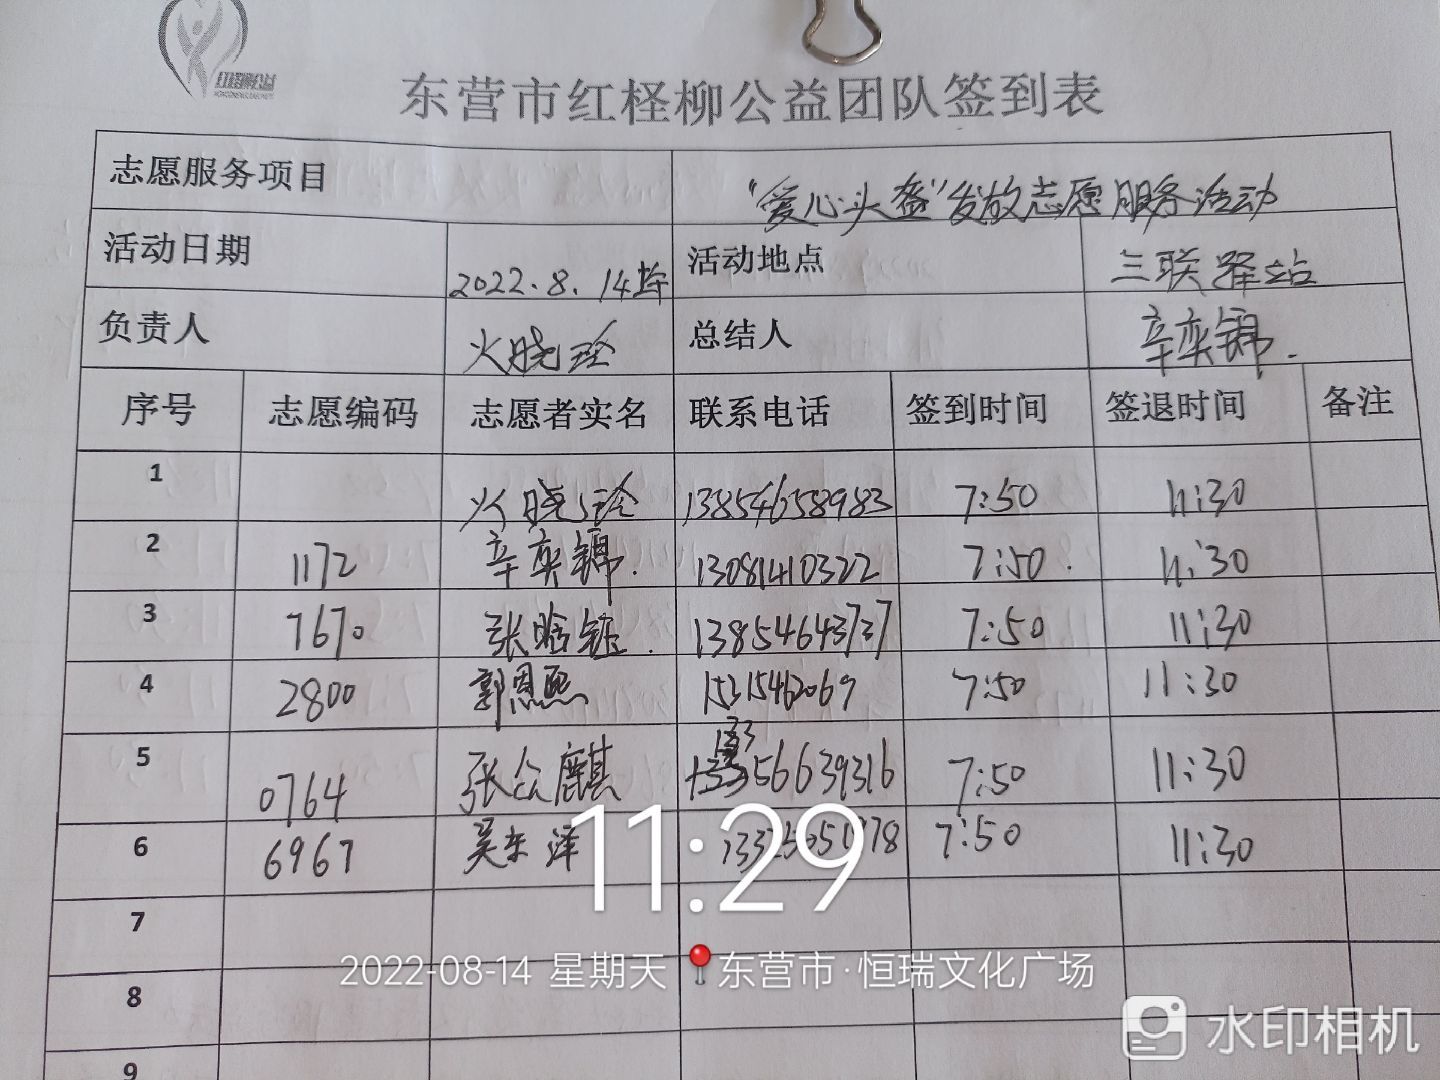 东营市红柽柳公益团队签到表
志愿服务项目 "爱心头盔"发放志愿服务活动
活动日期 2022.8.14 活动地点 三联驿站
负责人 火晓玲 总结人 辛奕锦.
序号 志愿编码 志愿者实名 联系电话 签到时间 签退时间 备注
1 火晓玲 13854658983 7:50 11:30
2 1172 辛奕锦. 13081410322 7:50. 11:30
3 7670 张晗钰. 13854643737 7:50 11:30
4 2800 郭恩熙 15315462069 7:50 11:30
5 0764 张公麒 7:50 11:30
6 6967 吴东泽 7:50 11:30
7
8
9
11:29
2022-08-14 星期天 东营市·恒瑞文化广场
水印相机